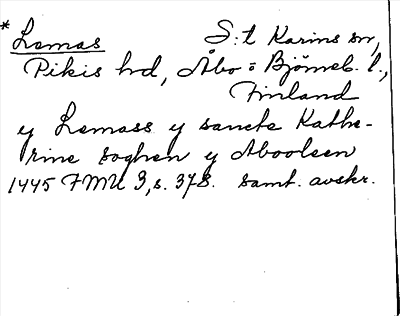 * Lemas S:t Karins sn,
Pikis hd, Åbo o Björneb. l.,
Finland
y Lemass y sancte Kathe-
rine soghen y Aboolsen
1445 FMU 3, s. 378. samt. avskr.